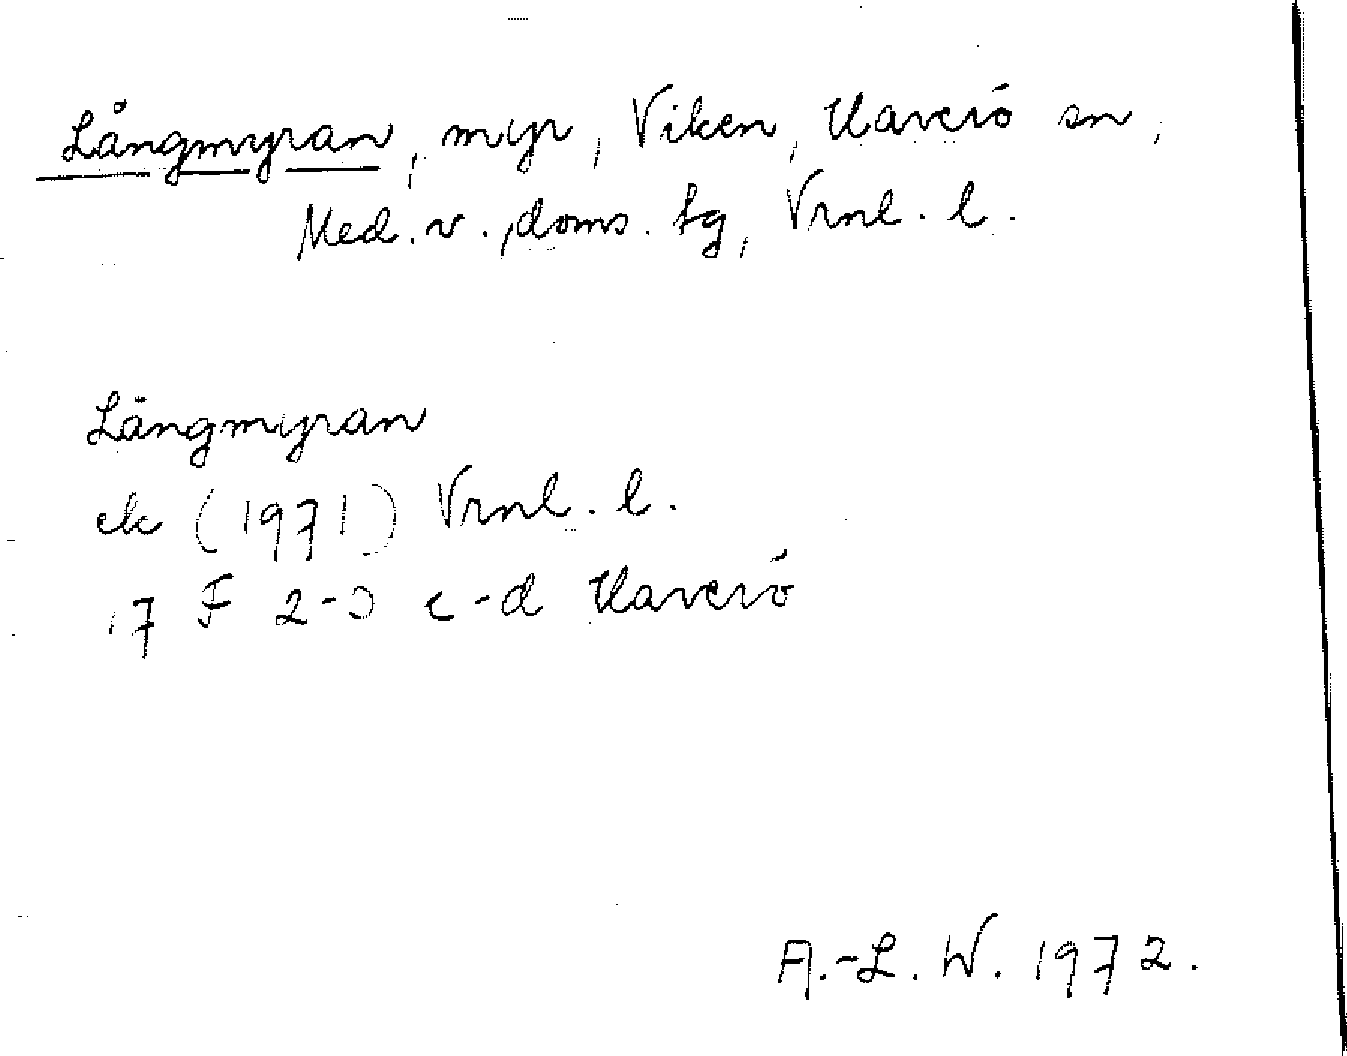 Långmyran, myr, Viken, Haverö sn,
Med. v., doms. tg, Vrnl. l.
Långmyran
ek (1971) Vrnl. l.
17 F 2-3 c-d Haverö
A.-L. W. 1972.